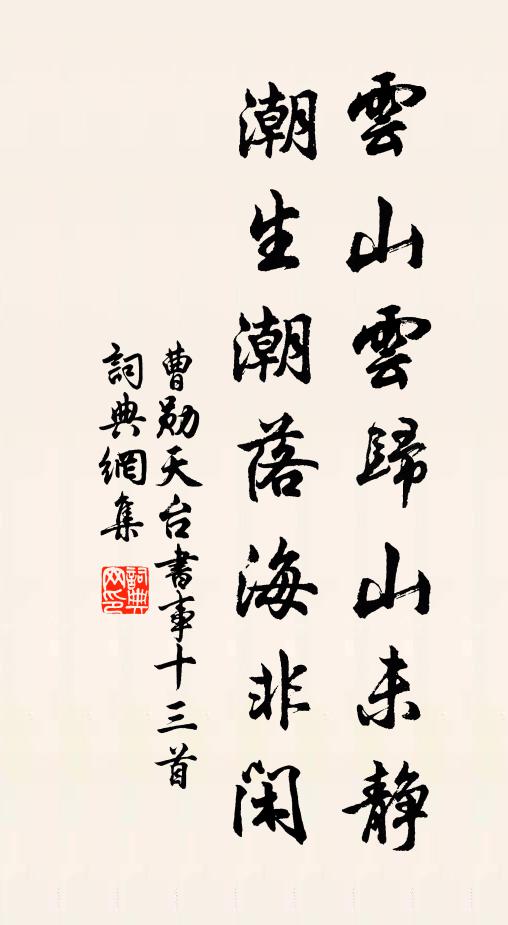 雲山雲歸山未静
潮生潮落海非闲
曹勛天台書事十三首
詞典網集
詞典网印